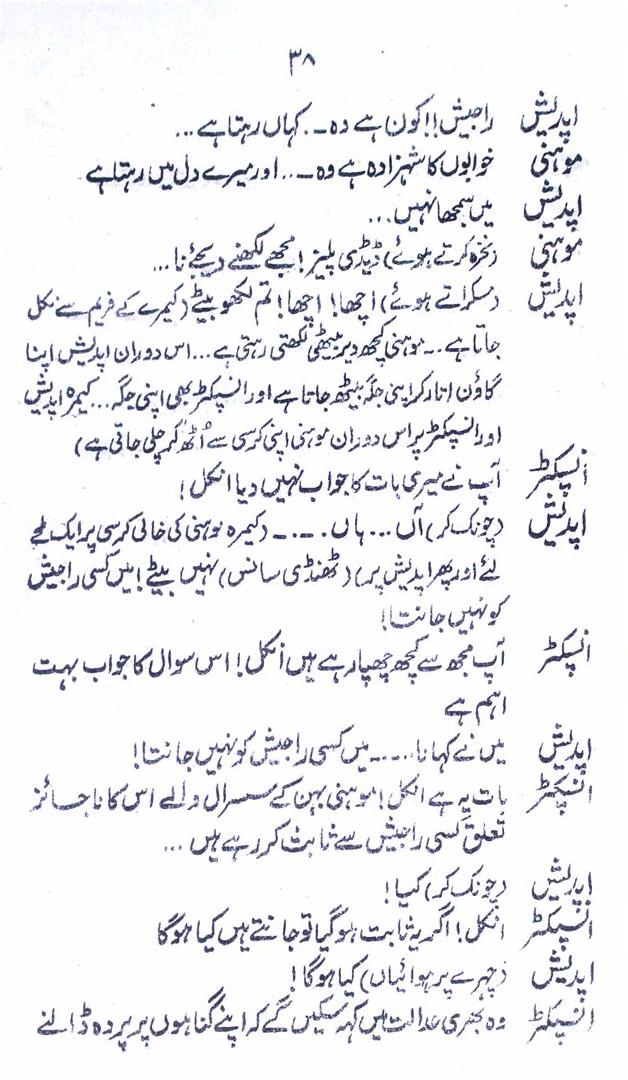 ۳۸
اپدیش راجیش!! کون ہے وہ ۔۔ کہاں رہتا ہے ...
موہنی خوابوں کا شہزادہ ہے وہ ۔۔۔ اور میرے دل میں رہتا ہے
اپدیش میں سمجھا نہیں ...
موہنی (نخرہ کرتے ہوئے) ڈیڈی پلیز! مجھے لکھنے دیجئے نا ...
اپدیش (مسکراتے ہوئے) اچھا! اچھا! تم لکھو بیٹے (کیمرے کے فریم سے نکل
جاتا ہے ۔۔ موہنی کچھ دیر بیٹھی لکھتی رہتی ہے ... اس دوران اپدیش اپنا
گاؤن اتار کر اپنی جگہ بیٹھ جاتا ہے اور انسپکٹر بھی اپنی جگہ ... کیمرہ اپدیش
اور انسپکٹر پر اس دوران موہنی اپنی کرسی سے اُٹھ کر چلی جاتی ہے)
انسپکٹر آپ نے میری بات کا جواب نہیں دیا انکل!
اپدیش (چونک کر) آں ... ہاں ۔۔۔۔ (کیمرہ موہنی کی خالی کرسی پر ایک لمحے
لئے اور پھر اپدیش پر) (ٹھنڈی سانس) نہیں بیٹے! میں کسی راجیش
کو نہیں جانتا!
انسپکٹر آپ مجھ سے کچھ چھپا رہے ہیں انکل! اس سوال کا جواب بہت
اہم ہے
اپدیش میں نے کہا نا ۔۔۔۔ میں کسی راجیش کو نہیں جانتا!
انسپکٹر بات یہ ہے انکل! موہنی بہن کے سسرال والے اس کا ناجائز
تعلق کسی راجیش سے ثابت کر رہے ہیں ...
اپدیش (چونک کر) کیا!
انسپکٹر انکل! اگر یہ ثابت ہو گیا تو جانتے ہیں کیا ہوگا
اپدیش (چہرے پر ہوائیاں) کیا ہوگا!
انسپکٹر وہ بھری عدالت میں کہہ سکیں گے کہ اپنے گناہوں پر پردہ ڈالنے